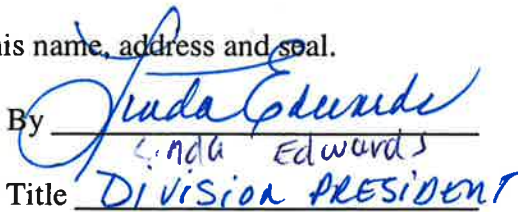 his name, address and seal.
By Linda Edwards
Linda Edwards
Title DIVISION PRESIDENT